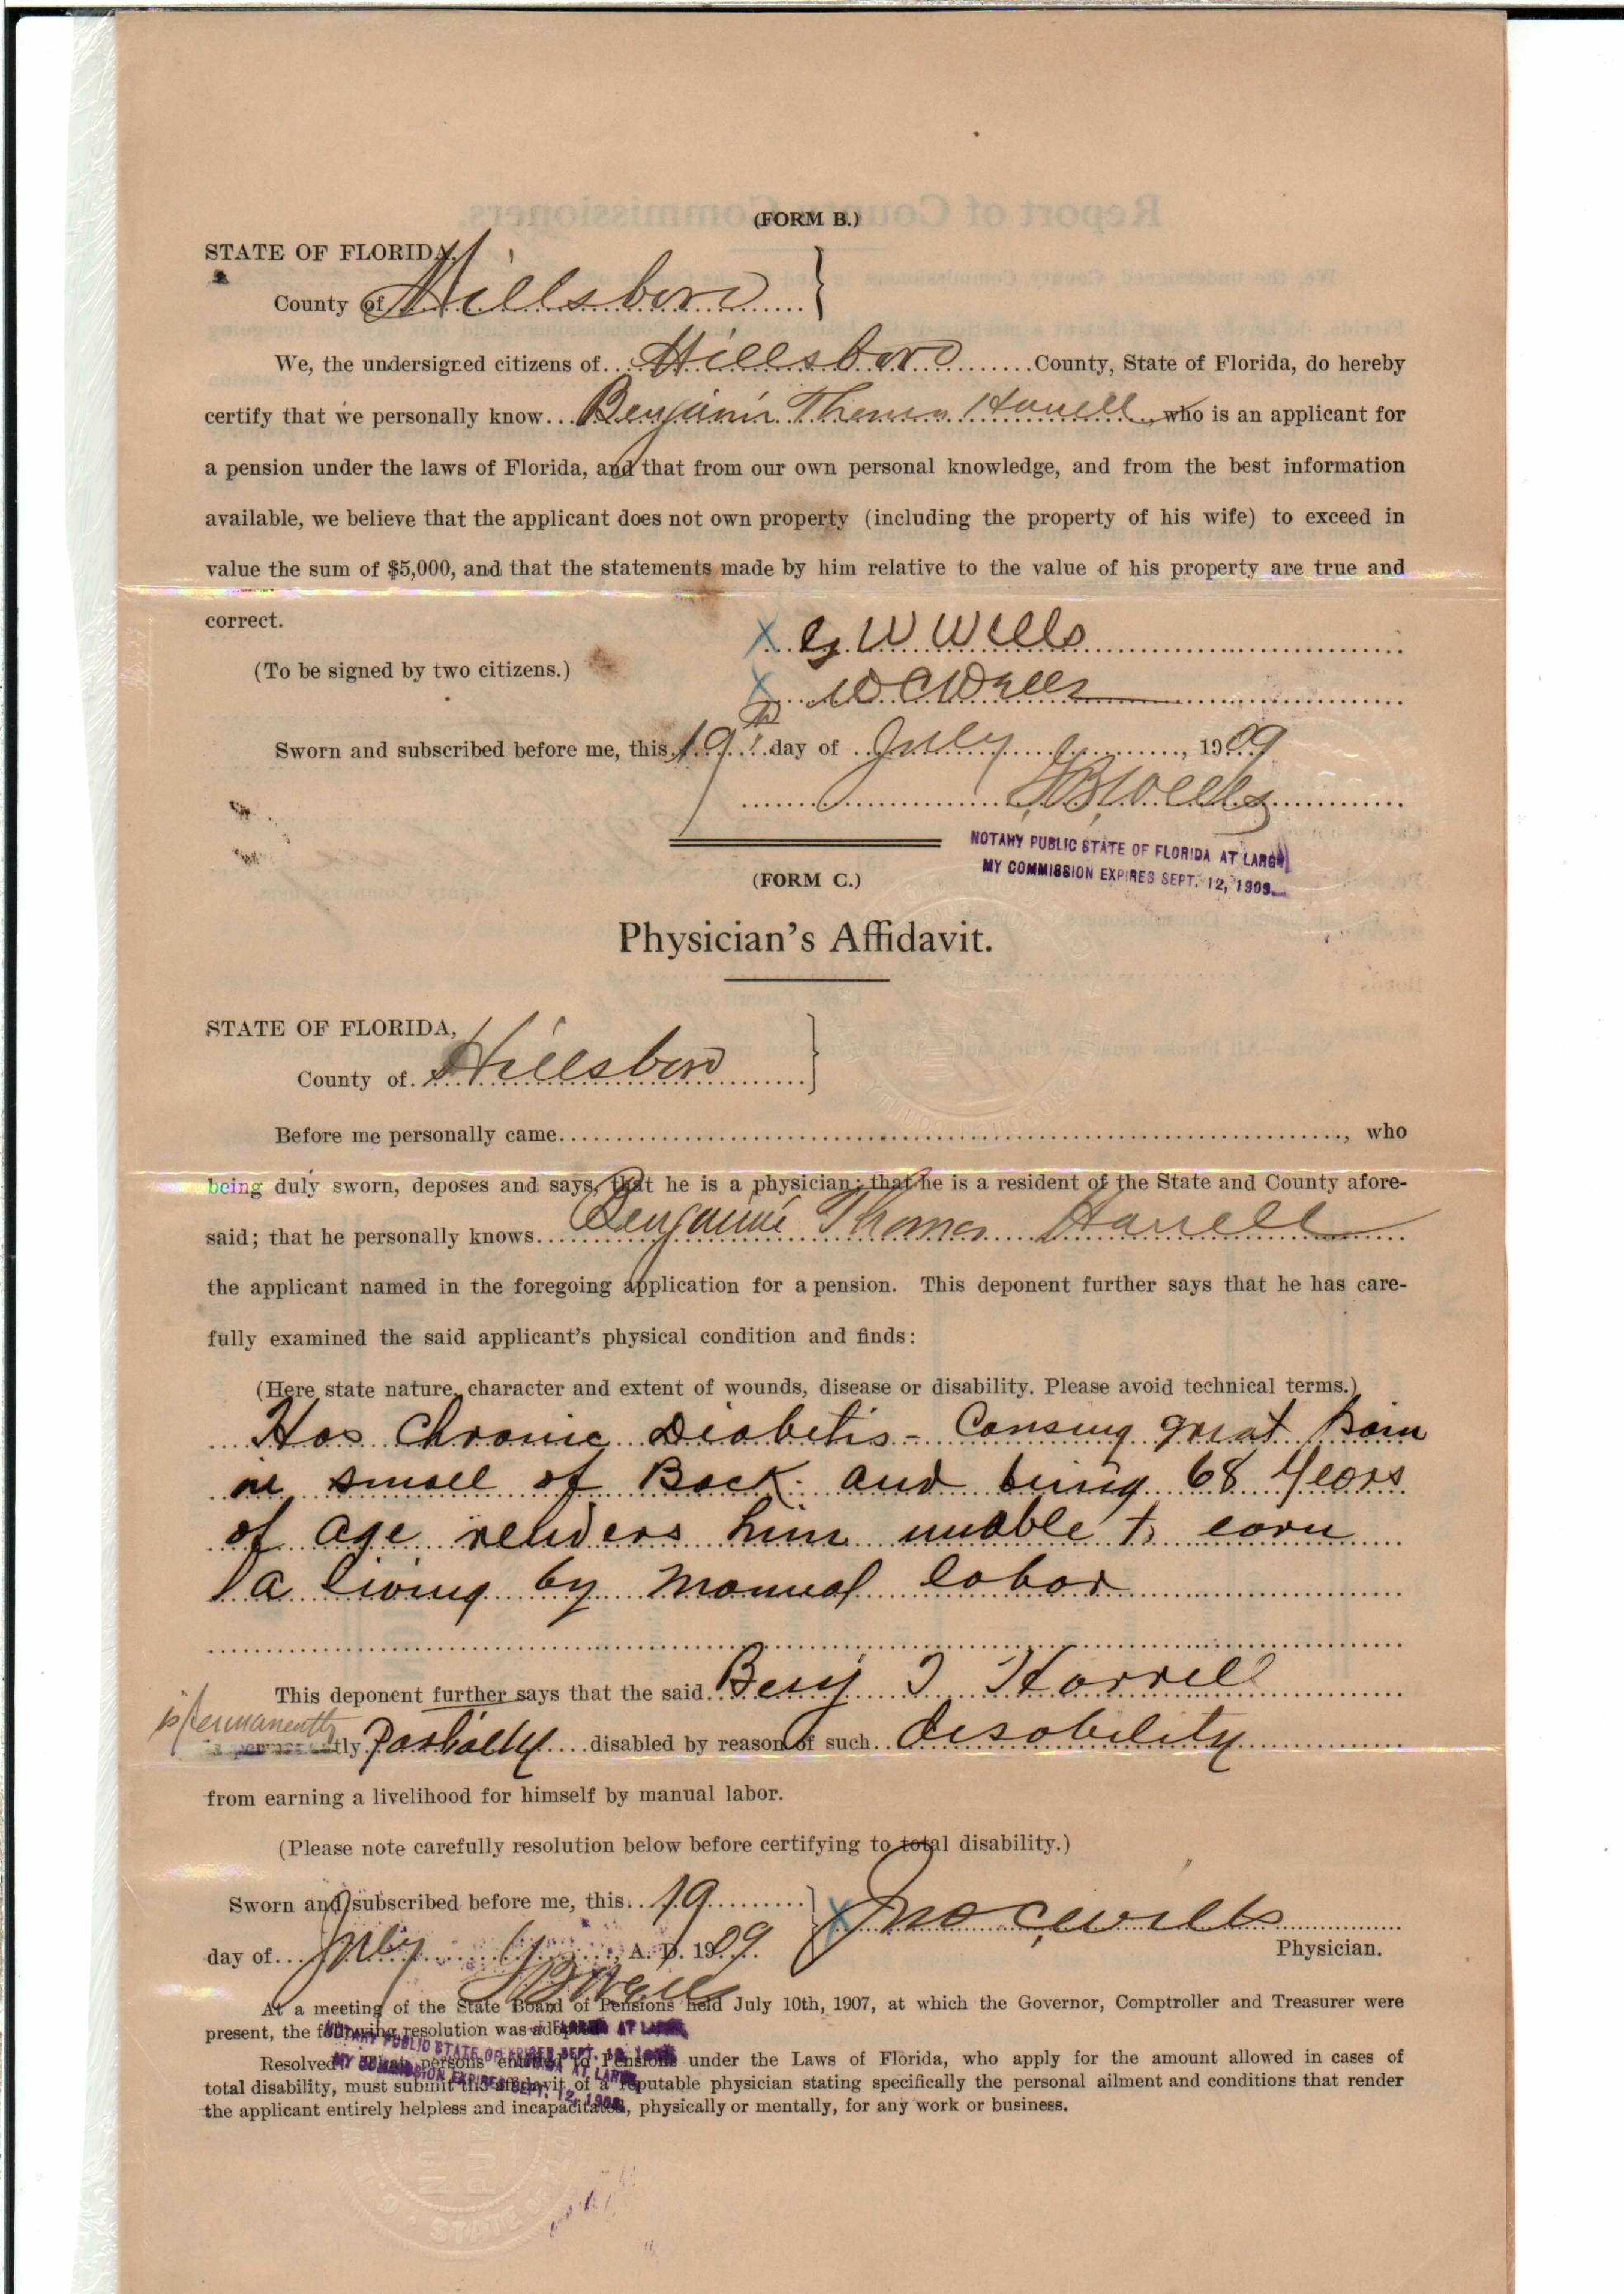 (FORM B.)
STATE OF FLORIDA,
County of Hillsboro
We, the undersigned citizens of Hillsboro County, State of Florida, do hereby
certify that we personally know Benjamin Thomas Harrell who is an applicant for
a pension under the laws of Florida, and that from our own personal knowledge, and from the best information
available, we believe that the applicant does not own property (including the property of his wife) to exceed in
value the sum of $5,000, and that the statements made by him relative to the value of his property are true and
correct.
X W Wells
(To be signed by two citizens.)
X W C Wells
Sworn and subscribed before me, this 19th day of July, 1909
Wells
NOTARY PUBLIC STATE OF FLORIDA AT LARGE
MY COMMISSION EXPIRES SEPT. 12, 1909
(FORM C.)
Physician's Affidavit.
STATE OF FLORIDA,
County of Hillsboro
Before me personally came, who
being duly sworn, deposes and says, that he is a physician; that he is a resident of the State and County afore-
said; that he personally knows Benjamin Thomas Harrell
the applicant named in the foregoing application for a pension. This deponent further says that he has care-
fully examined the said applicant's physical condition and finds:
(Here state nature, character and extent of wounds, disease or disability. Please avoid technical terms.)
Has Chronic Diabetis - Causing great Pain
in small of Back and being 68 Years
of age renders him unable to earn
a living by Manual labor
This deponent further says that the said Benj T Harrell
is permanently tly Partially disabled by reason of such disability
from earning a livelihood for himself by manual labor.
(Please note carefully resolution below before certifying to total disability.)
Sworn and subscribed before me, this 19
X Wells
day of July, A. D. 1909.
Physician.
Wells
At a meeting of the State Board of Pensions held July 10th, 1907, at which the Governor, Comptroller and Treasurer were
present, the following resolution was adopted
Resolved persons entitled to Pensions under the Laws of Florida, who apply for the amount allowed in cases of
total disability, must submit the affidavit of a reputable physician stating specifically the personal ailment and conditions that render
the applicant entirely helpless and incapacitated, physically or mentally, for any work or business.